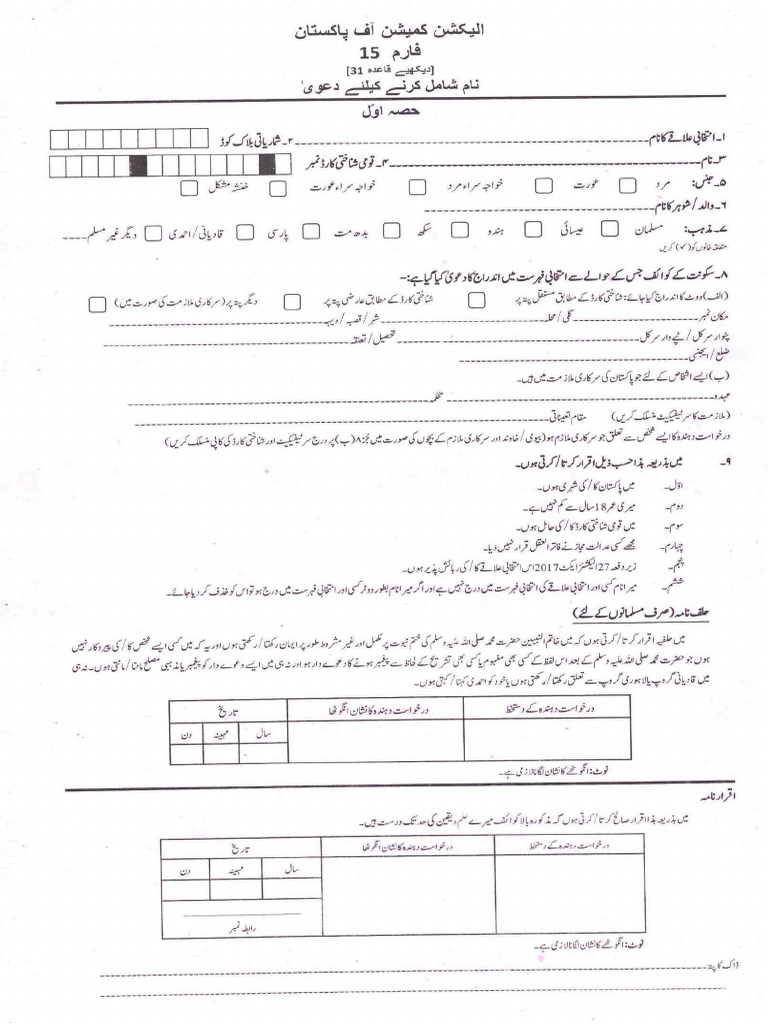 الیکشن کمیشن آف پاکستان
فارم 15
[دیکھیے قاعدہ 31]
نام شامل کرنے کیلئے دعویٰ
حصہ اوّل
۱۔ انتخابی علاقے کا نام ۲۔ شماریاتی بلاک کوڈ
۳۔ نام ۴۔ قومی شناختی کارڈ نمبر
۵۔ جنس: مرد عورت خواجہ سراء مرد خواجہ سراء عورت خنثہ مشکل
۶۔ والد/شوہر کا نام
۷۔ مذہب: مسلمان عیسائی ہندو سکھ بدھ مت پارسی قادیانی/احمدی دیگر غیر مسلم
متعلقہ خانوں کو (✓) کریں
۸۔ سکونت کے کوائف جس کے حوالے سے انتخابی فہرست میں اندراج کا دعویٰ کیا گیا ہے:-
(الف) ووٹ کا اندراج کیا جائے: شناختی کارڈ کے مطابق مستقل پتہ پر شناختی کارڈ کے مطابق عارضی پتہ پر دیگر پتہ پر (سرکاری ملازمت کی صورت میں)
مکان نمبر گلی/محلہ شہر/قصبہ/دیہہ
پٹوار سرکل/ٹپے دار سرکل تحصیل/تعلقہ
ضلع/ایجنسی
(ب) ایسے اشخاص کے لئے جو پاکستان کی سرکاری ملازمت میں ہیں۔
عہدہ محکمہ
(ملازمت کا سرٹیفیکیٹ منسلک کریں) مقام تعیناتی
درخواست دہندہ کا ایسے شخص سے تعلق جو سرکاری ملازم ہو (بیوی/خاوند اور سرکاری ملازم کے بچوں کی صورت میں جُز ۸ (ب) پر درج سرٹیفیکیٹ اور شناختی کارڈ کی کاپی منسلک کریں)
۹۔ میں بذریعہ ہذا حسب ذیل اقرار کرتا/کرتی ہوں۔
اوّل۔ میں پاکستان کا/کی شہری ہوں۔
دوم۔ میری عمر 18 سال سے کم نہیں ہے۔
سوم۔ میں قومی شناختی کارڈ کا/کی حامل ہوں۔
چہارم۔ مجھے کسی عدالت مجاز نے فاتر العقل قرار نہیں دیا۔
پنجم۔ زیر دفعہ 27 الیکشنز ایکٹ 2017 اس انتخابی علاقے کا/کی رہائش پذیر ہوں۔
ششم۔ میرا نام کسی اور انتخابی علاقے کی انتخابی فہرست میں درج نہیں ہے اور اگر میرا نام بطور ووٹر کسی اور انتخابی فہرست میں درج ہو تو اس کو حذف کر دیا جائے۔
حلف نامہ (صرف مسلمانوں کے لئے)
میں حلفیہ اقرار کرتا/کرتی ہوں کہ میں خاتم النبیین حضرت محمد صلی اللہ علیہ وسلم کی ختم نبوت پر مکمل اور غیر مشروط طور پر ایمان رکھتا/رکھتی ہوں اور یہ کہ میں کسی ایسے شخص کا/کی پیروکار نہیں
ہوں جو حضرت محمد صلی اللہ علیہ وسلم کے بعد اس لفظ کے کسی بھی مفہوم یا کسی بھی تشریح کے لحاظ سے پیغمبر ہونے کا دعوے دار ہو اور نہ ہی میں ایسے دعوے دار کو پیغمبر یا مذہبی مصلح مانتا/مانتی ہوں۔ نہ ہی
میں قادیانی گروپ یا لاہوری گروپ سے تعلق رکھتا/رکھتی ہوں یا خود کو احمدی کہتا/کہتی ہوں۔
درخواست دہندہ کے دستخط درخواست دہندہ کا نشان انگوٹھا تاریخ
سال مہینہ دن
نوٹ: انگوٹھے کا نشان لگانا لازمی ہے۔
اقرار نامہ
میں بذریعہ ہذا اقرار صالح کرتا/کرتی ہوں کہ مذکورہ بالا کوائف میرے علم و یقین کی حد تک درست ہیں۔
درخواست دہندہ کے دستخط درخواست دہندہ کا نشان انگوٹھا تاریخ
سال مہینہ دن
رابطہ نمبر
نوٹ: انگوٹھے کا نشان لگانا لازمی ہے۔
ڈاک کا پتہ